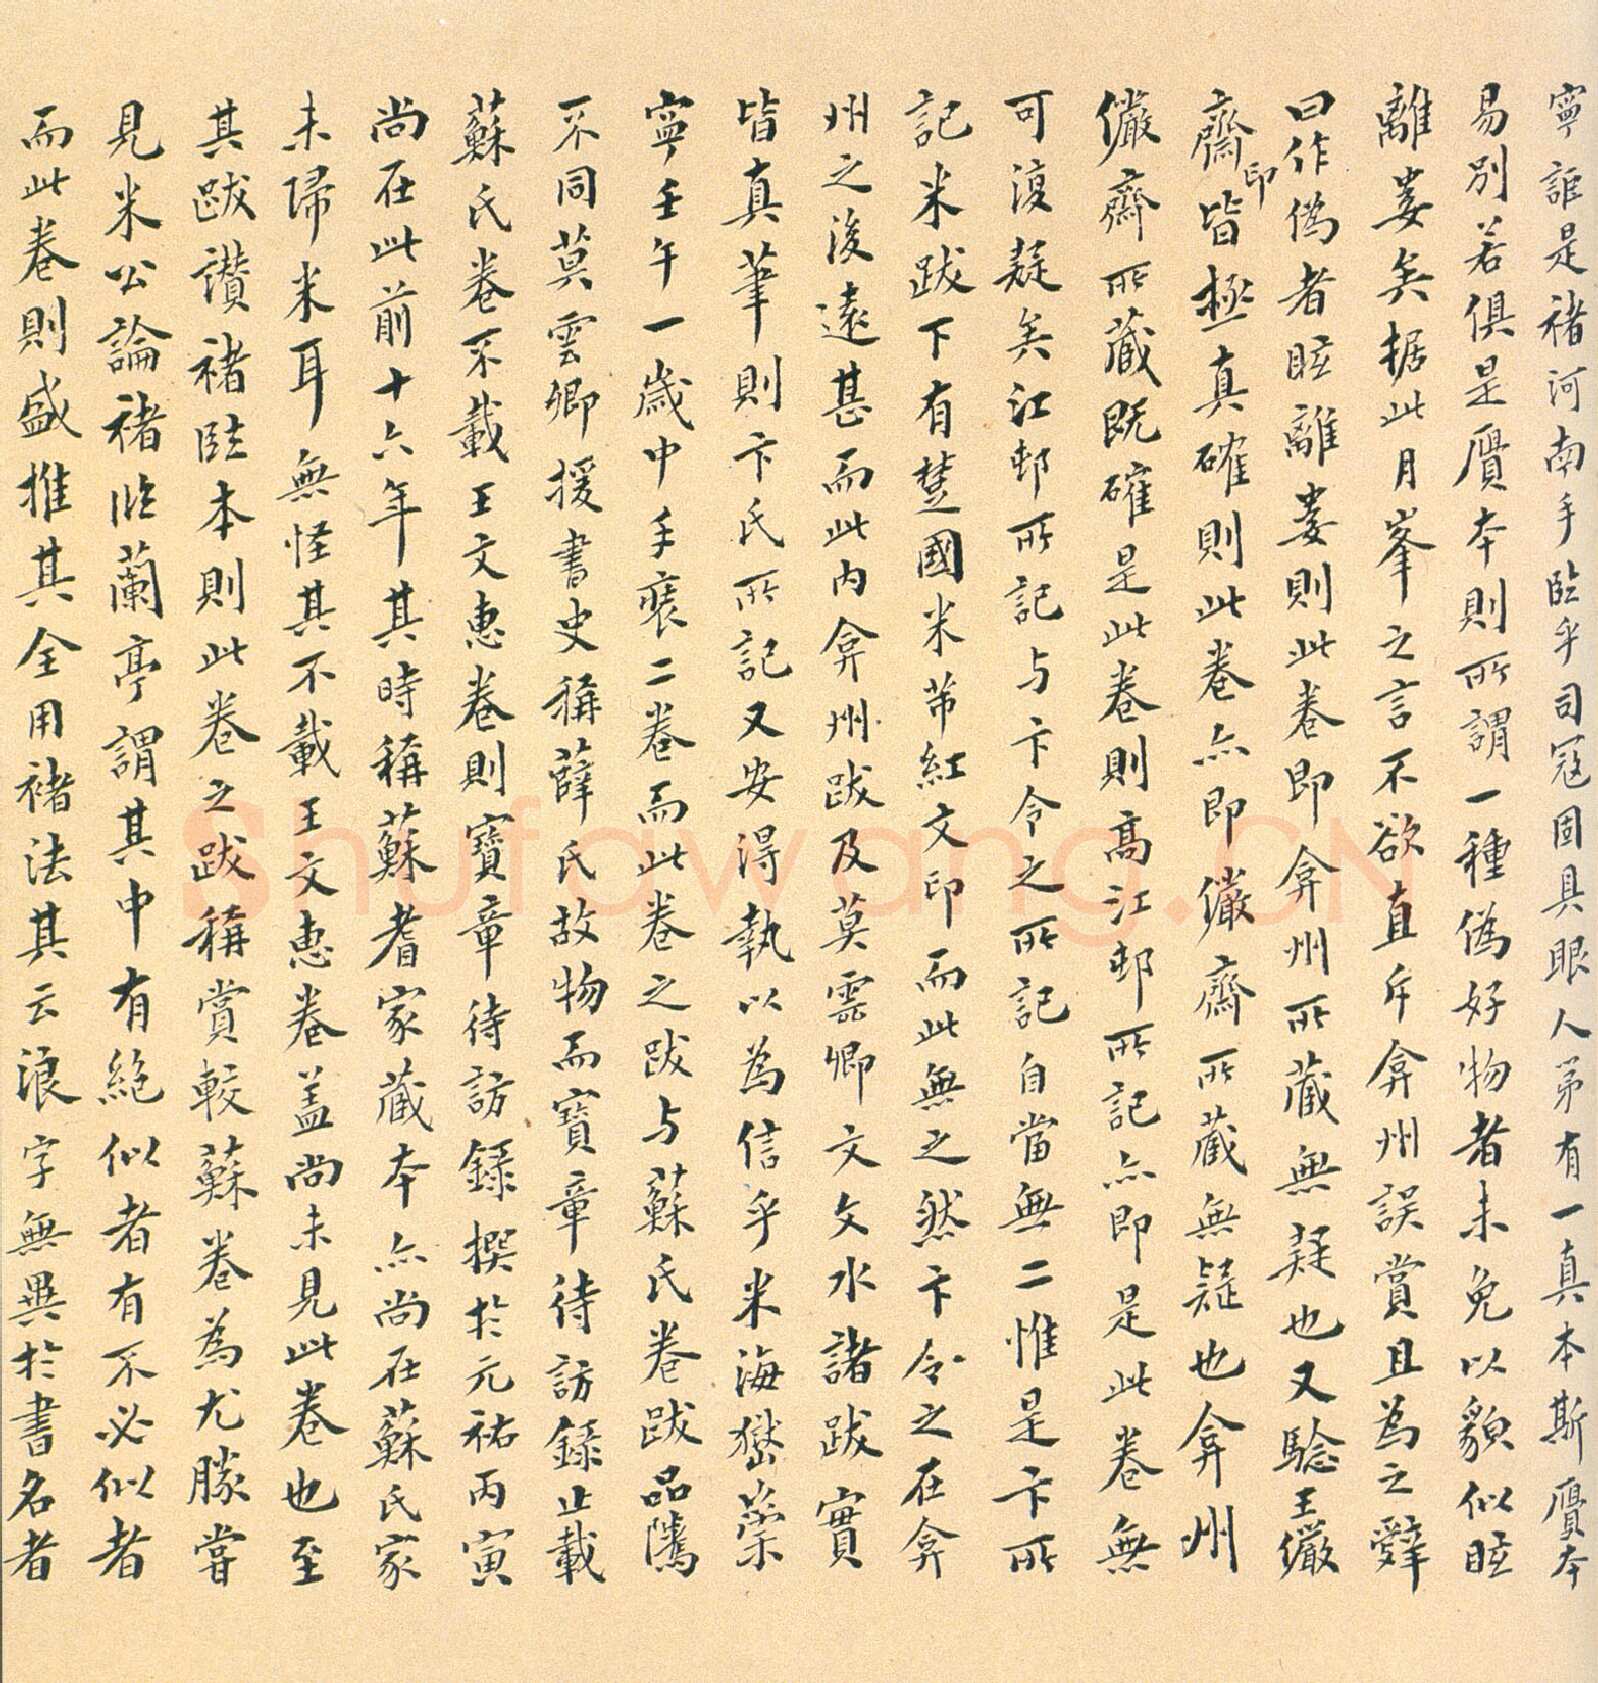 寧詎是褚河南手臨乎司寇固具眼人第有一真本斯贗本
易別若俱是贗本則所謂一種偽好物者未免以貌似眩
離婁矣据此月峯之言不欲直斥弇州誤賞且為之辭
曰作偽者眩離婁則此卷即弇州所藏無疑也又騐王儼
齋印皆極真確則此卷亦即儼齋所藏無疑也弇州
儼齋所藏既確是此卷則高江邨所記亦即是此卷無
可復疑矣江邨所記与卞令之所記自當無二惟是卞所
記米跋下有楚國米芾紅文印而此無之然卞令之在弇
州之後遠甚而此內弇州跋及莫雲卿文文水諸跋實
皆真筆則卞氏所記又安得執以為信乎米海嶽崇
寧壬午一歲中手裝二卷而此卷之跋与蘇氏卷跋品隲
不同莫雲卿援書史稱薛氏故物而寶章待訪錄止載
蘇氏卷不載王文惠卷則寶章待訪錄撰於元祐丙寅
尚在此前十六年其時稱蘇耆家藏本亦尚在蘇氏家
未歸米耳無怪其不載王文惠卷蓋尚未見此卷也至
其跋讚褚臨本則此卷之跋稱賞較蘇卷為尤勝嘗
見米公論褚臨蘭亭謂其中有絕似者有不必似者
而此卷則盛推其全用褚法其云浪字無異於書名者
Shufawang.CN